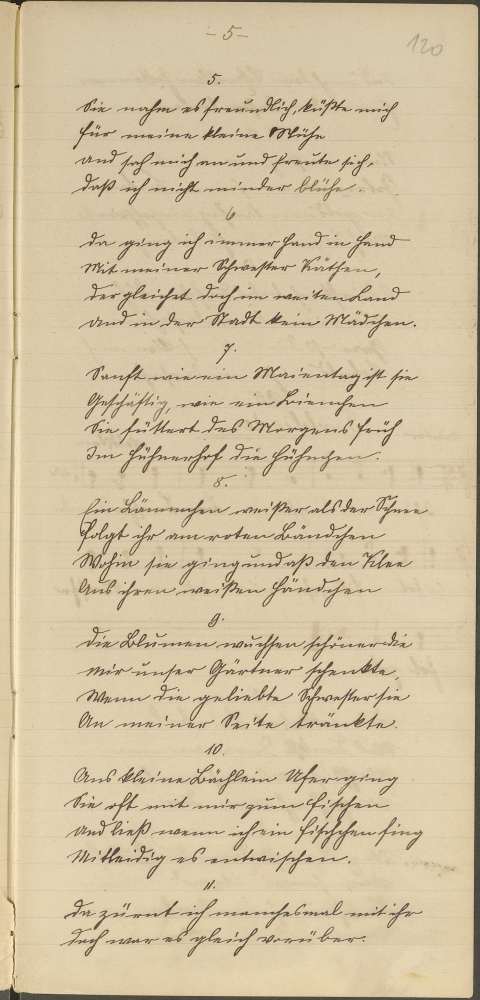 - 5 -
120
5.
Sie nahm es freundlich, küßte mich
Für meine kleine Mühe
und sah mich an und freute sich,
daß ich nicht minder blühe.
6
da ging ich immer Hand in Hand
Mit meiner Schwester Käthen,
der gleichet doch im weiten Land
und in der Stadt kein Mädchen.
7.
Sanft wie ein Maientag ist sie
Geschäftig, wie ein Bienchen
Sie füttert des Morgens früh
Im Hühnerhof die Hühnchen.
8.
Ein Lämmchen weißer als der Schnee
Folgt ihr am roten Bändchen
Wohin sie ging und aß den Klee
Aus ihren weißen Händchen
9.
die Blumen wuchsen schöner die
Mir unser Gärtner schenkte,
Wenn die geliebte Schwester sie
An meiner Seite tränkte.
10.
Ans kleine Bächlein Ufer ging
Sie oft mit mir zum fischen
und ließ wenn ich ein Fischchen fing
Mitleidig es entwischen.
11.
da zürnt ich manchesmal mit ihr
doch war es gleich vorüber.